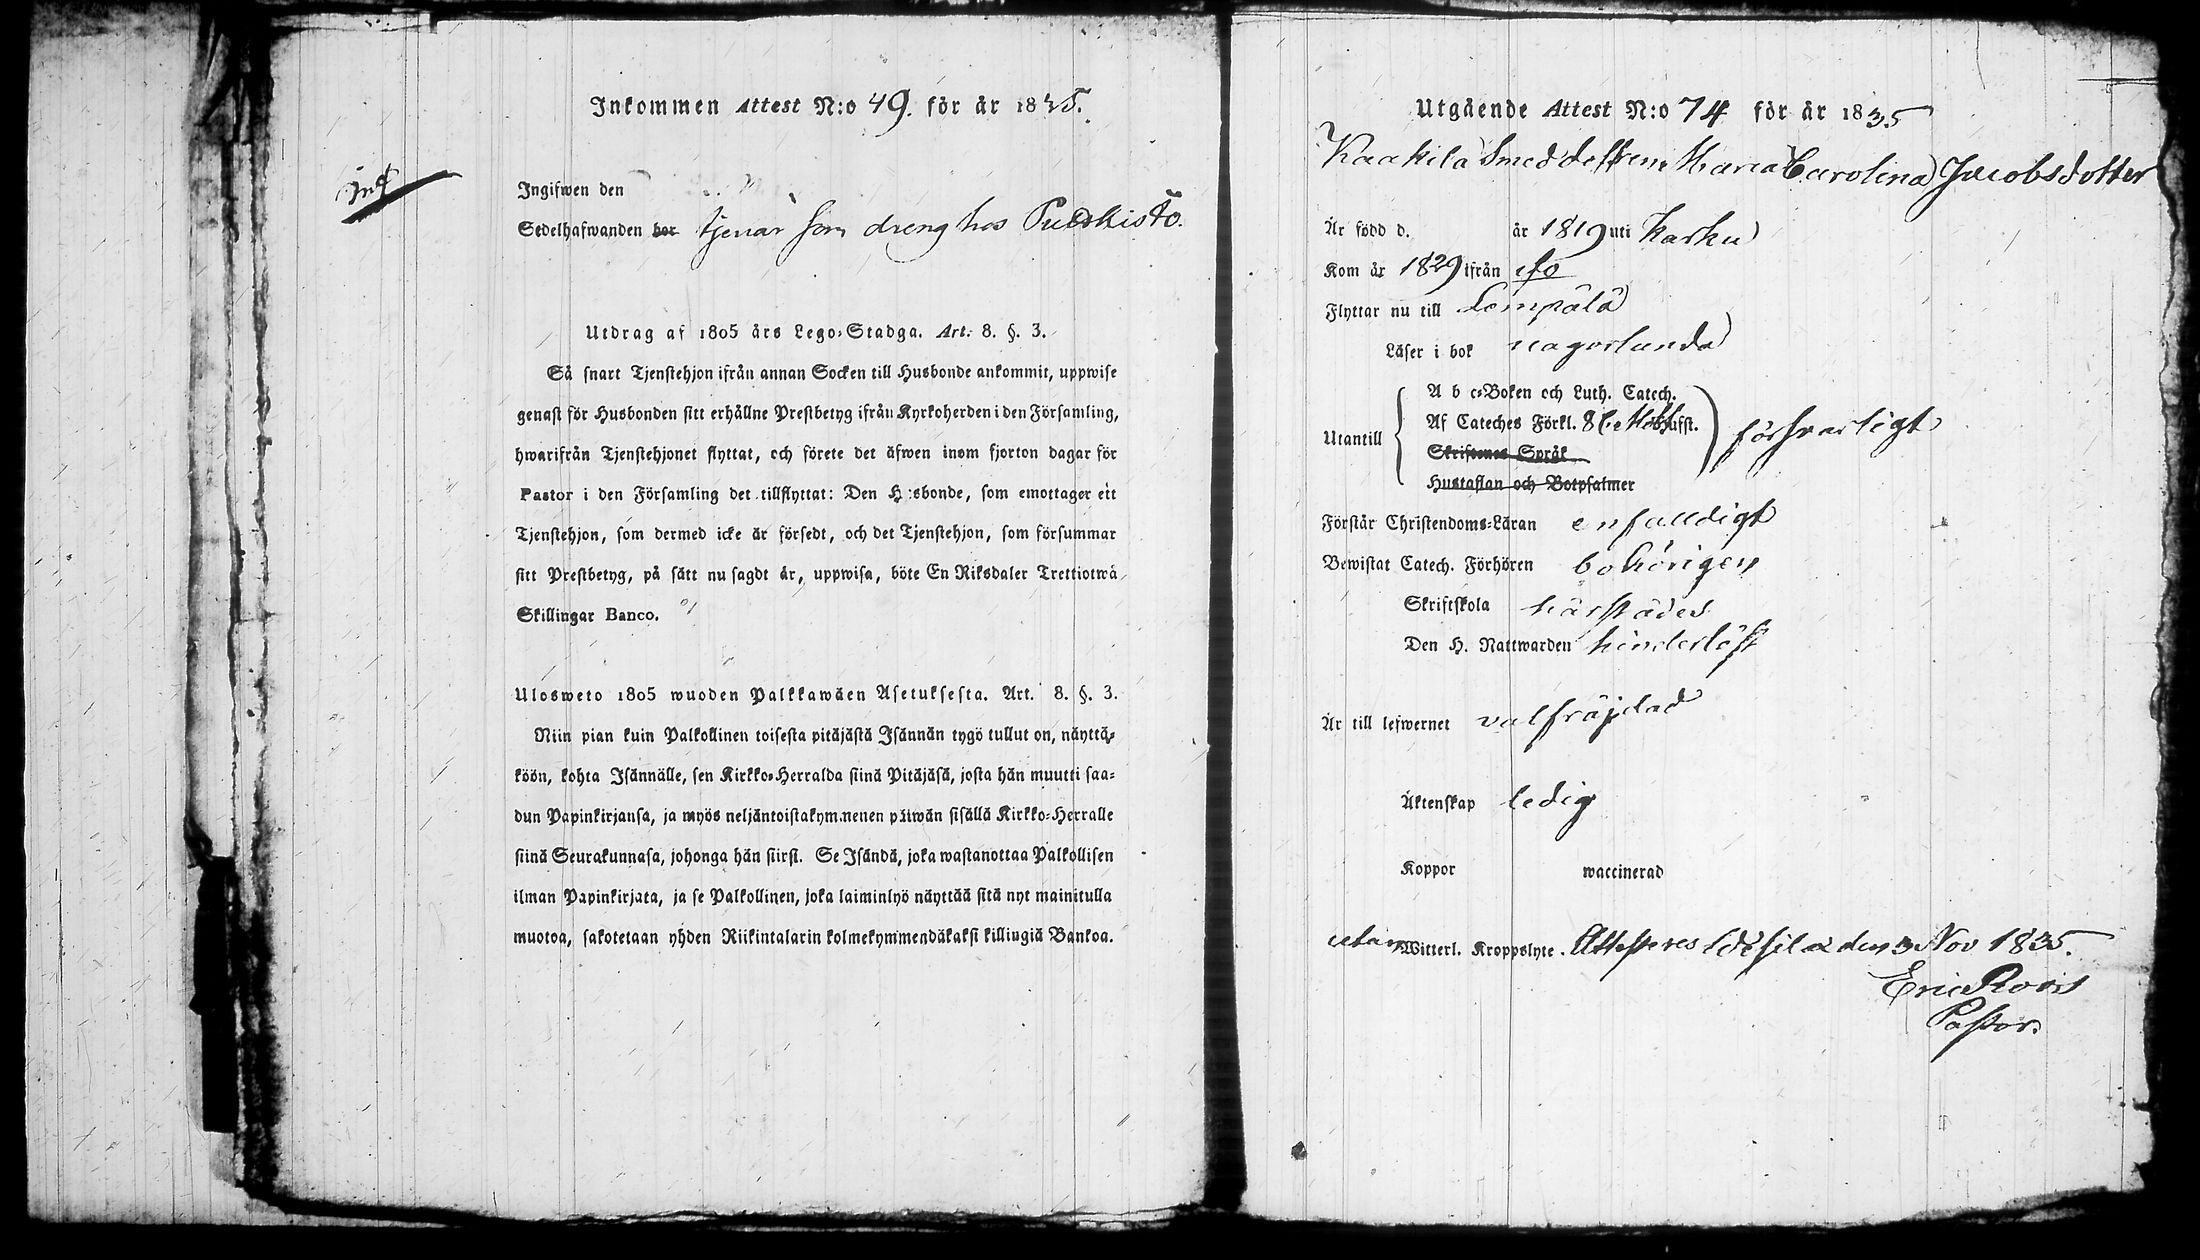 Inkommen Attest N:o 49. för år 1835.
Ingifwen den
Sedelhafwanden bor tjenar som dreng hos Puoskisto.
Utdrag af 1805 års Lego-Stadga. Art. 8. §. 3.
Så snart Tjenstehjon ifrån annan Socken till Husbonde ankommit, uppwise
genast för Husbonden sitt erhållne Prestbetyg ifrån Kyrkoherden i den Församling,
hwarifrån Tjenstehjonet flyttat, och förete det äfwen inom fjorton dagar för
Pastor i den Församling det tillflyttat: Den Husbonde, som emottager ett
Tjenstehjon, som dermed icke är försedt, och det Tjenstehjon, som försummar
sitt Prestbetyg, på sätt nu sagdt är, uppwisa, böte En Riksdaler Trettiotwå
Skillingar Banco.
Ulosweto 1805 wuoden Palkkawäen Asetuksesta. Art. 8. §. 3.
Niin pian kuin Palkollinen toisesta pitäjästä Isännän tygö tullut on, näyttä-
köön, kohta Isännälle, sen Kirkko-Herralda siinä Pitäjäsä, josta hän muutti saa-
dun Papinkirjansa, ja myös neljäntoistakymmenen päiwän sisällä Kirkko-Herralle
siinä Seurakunnasa, johonga hän siirsi. Se Isändä, joka wastanottaa Palkollisen
ilman Papinkirjata, ja se Palkollinen, joka laiminlyö näyttää sitä nyt mainitulla
muotoa, sakotetaan yhden Riikintalarin kolmekymmendäkaksi killingiä Bankoa.
Utgående Attest N:o 74 för år 1835
Kaakila Smed dottren Maria Carolina Jacobsdotter
Är född d. år 1819 uti Karku
Kom år 1829 ifrån
Flyttar nu till Lempälä
Läser i bok någorlunda
Utantill
A b c-Boken och Luth. Catech.
Af Cateches Förkl. 8 Hufst.
Skriftenes Språk
Hustaflan och Botpsalmer
försvarligt
Förstår Christendoms-Läran enfalldigt
Bewistat Catech. Förhören behörigen
Skriftskola härstädes
Den H. Nattwarden hinderlöst
Är till lefwernet välfräjdad
Äktenskap ledig
Koppor waccinerad
utan Witterl. Kroppslyte. Attesteres den 3 Nov 1835.
Eric Roos
Pastor.